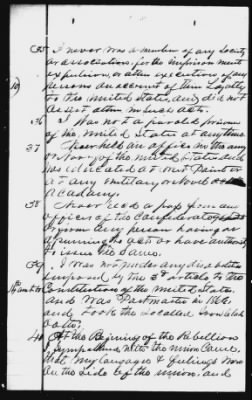 35 I never was a member of any Society
or association, for the imprisonment
expulsion, or other execution of any
10 persons on account of their Loyalty
to the United States, and did not
assist other in such act.
36 I was not a paroled prisoner
of the United States at any time
37 I never held an office in the army
or Navy of the United States and
was educated at West Point or
at any Military or Naval
Academy.
38 Never rec'd a pass from any
officer of the Confederate
or from any person having or
assuming to act or have authority
to issue the same.
39 I was not under any disabilities
imposed by the article to the
Constitution of the United States.
and was Postmaster in 186
and took the so called Iron Clad
oath.
40 At the Beginning of the Rebellion
I sympathised with the Union Cause,
that my language & feelings was
on the side of the Union; and